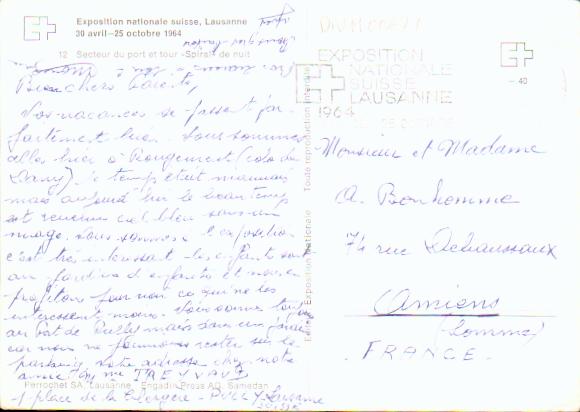 Exposition nationale suisse, Lausanne
30 avril–25 octobre 1964
12 Secteur du port et tour «Spiral» de nuit
Bien chers
Nos vacances se passent par-
faitement bien. Nous sommes
allés hier à Rougemont (colo de
Dany), le temps était mauvais
mais aujourd'hui le beau temps
est revenu ciel bleu sans un
nuage. Nous sommes à l'exposition
c'est très intéressant. les enfants sont
au jardin d'enfants et nous en
profitons pour voir ce qui ne les
intéresse moins. Nous sommes toujours
au port de Pully mais dans un
car nous ne pouvions rester sur le
parking, notre adresse chez notre
amie Mme TREYVAUD
1 place de la Clergère - PULLY-Lausanne
Perrochet SA, Lausanne Engadin Press AG, Samedan
Exposition Nationale Toute reproduction interdite
EXPOSITION
NATIONALE
SUISSE
LAUSANNE
1964
-40
Monsieur et Madame
A. Bonhomme
74 rue Dehaussaux
Amiens
(Somme)
FRANCE.